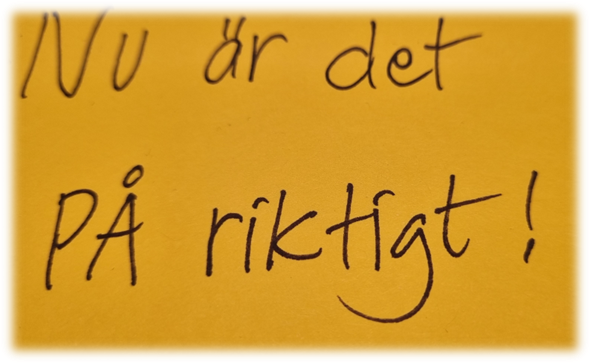 Nu är det
PÅ riktigt!